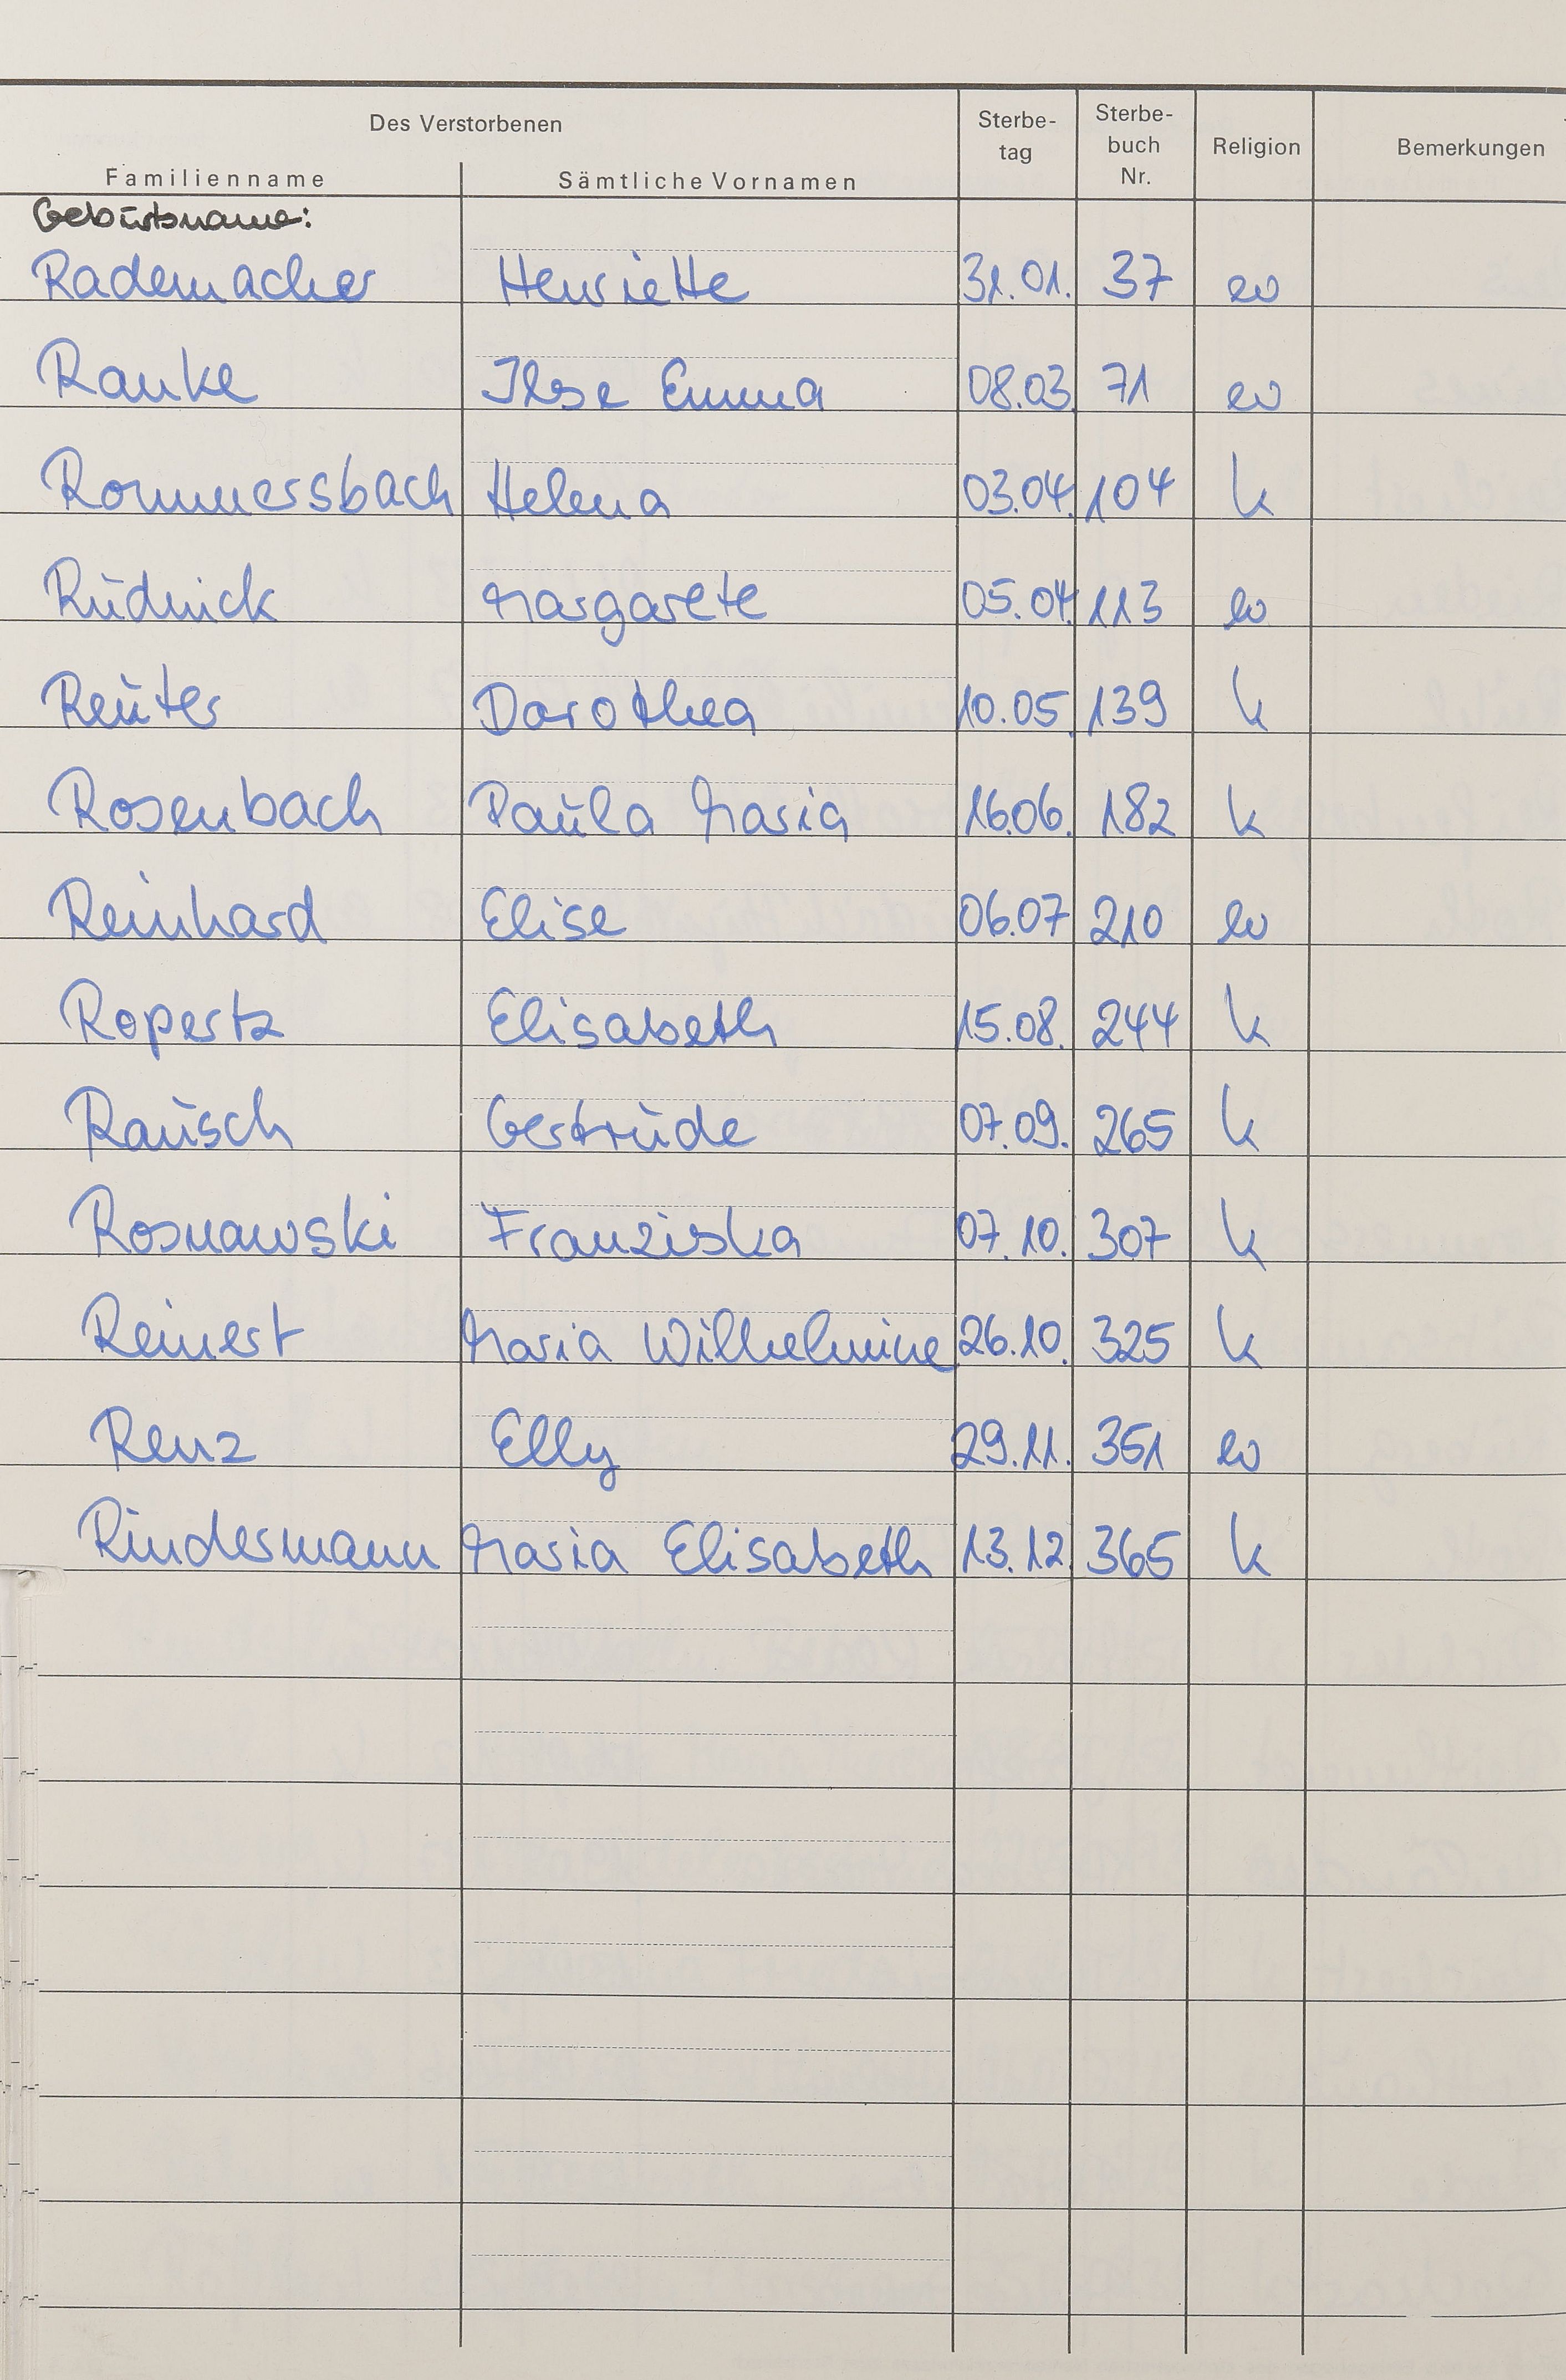 Des Verstorbenen
Familienname Sämtliche Vornamen Sterbe-tag Sterbe-buch Nr. Religion Bemerkungen
Geburtsname:
Rademacher Henriette 31.01. 37 ev
Ranke Ilse Emma 08.03. 71 ev
Rommersbach Helena 03.04. 104 k
Rudnick Margarete 05.04. 113 ev
Reuter Dorothea 10.05. 139 k
Rosenbach Paula Maria 16.06. 182 k
Reinhard Elise 06.07 210 ev
Ropertz Elisabeth 15.08. 244 k
Rausch Gertrude 07.09. 265 k
Rosnawski Franziska 07.10. 307 k
Reinert Maria Wilhelmine 26.10. 325 k
Renz Elly 29.11. 351 ev
Rindermann Maria Elisabeth 13.12. 365 k